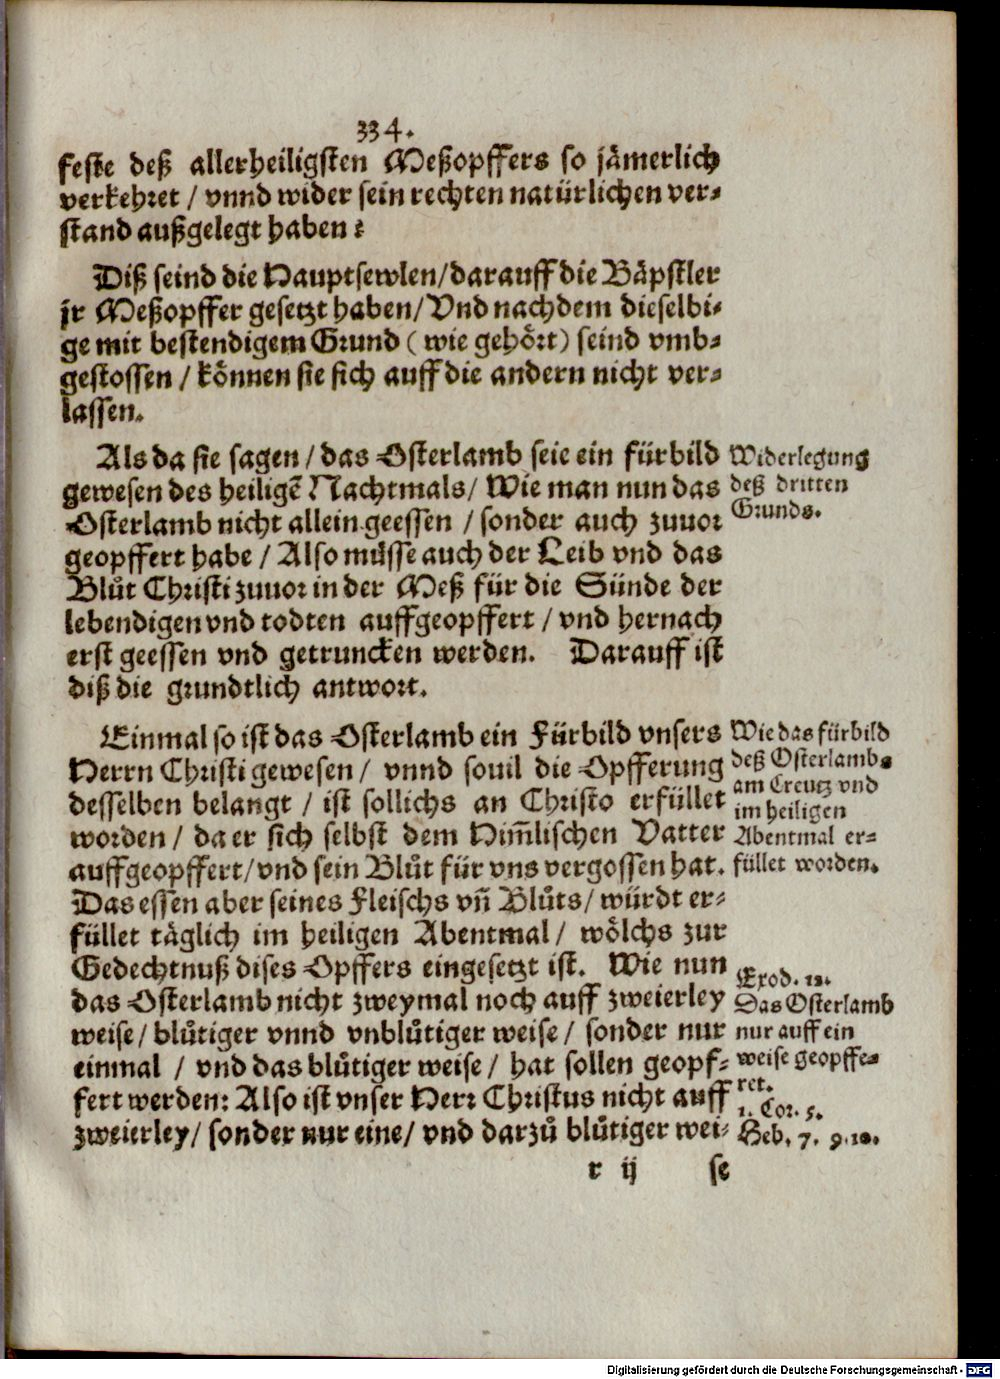 334.
feste deß allerheiligsten Meßopffers so jämerlich
verkehret / vnnd wider sein rechten natürlichen ver-
stand außgelegt haben?
Diß seind die Hauptsewlen/darauff die Bäpstler
jr Meßopffer gesetzt haben/Vnd nachdem dieselbi-
ge mit bestendigem Grund (wie gehört) seind vmb-
gestossen / können sie sich auff die andern nicht ver-
lassen.
Als da sie sagen / das Osterlamb seie ein fürbild
gewesen des heiligẽ Nachtmals/ Wie man nun das
Osterlamb nicht allein geessen / sonder auch zuuor
geopffert habe / Also müsse auch der Leib vnd das
Blůt Christi zuuor in der Meß für die Sünde der
lebendigen vnd todten auffgeopffert / vnd hernach
erst geessen vnd getruncken werden. Darauff ist
diß die grundtlich antwort.
Widerlegung
deß dritten
Grunds.
Einmal so ist das Osterlamb ein Fürbild vnsers
Herrn Christi gewesen / vnnd souil die Opfferung
desselben belangt / ist sollichs an Christo erfüllet
worden / da er sich selbst dem Him̃lischen Vatter
auffgeopffert/vnd sein Blůt für vns vergossen hat.
Das essen aber seines Fleischs vñ Blůts/ würdt er-
füllet täglich im heiligen Abentmal/ wölchs zur
Gedechtnuß dises Opffers eingesetzt ist. Wie nun
das Osterlamb nicht zweymal noch auff zweierley
weise/ blůtiger vnnd vnblůtiger weise / sonder nur
einmal / vnd das blůtiger weise/ hat sollen geopf-
fert werden: Also ist vnser Herr Christus nicht auff
zweierley/ sonder nur eine/ vnd darzů blůtiger wei-
Wie das fürbild
deß Osterlambs
am Creutz vnd
im heiligen
Abentmal er-
füllet worden.
Exod. 12.
Das Osterlamb
nur auff ein
weise geopffe-
ret.
1. Cor. 5.
Heb. 7. 9. 10.
r ij se
Digitalisierung gefördert durch die Deutsche Forschungsgemeinschaft - DFG